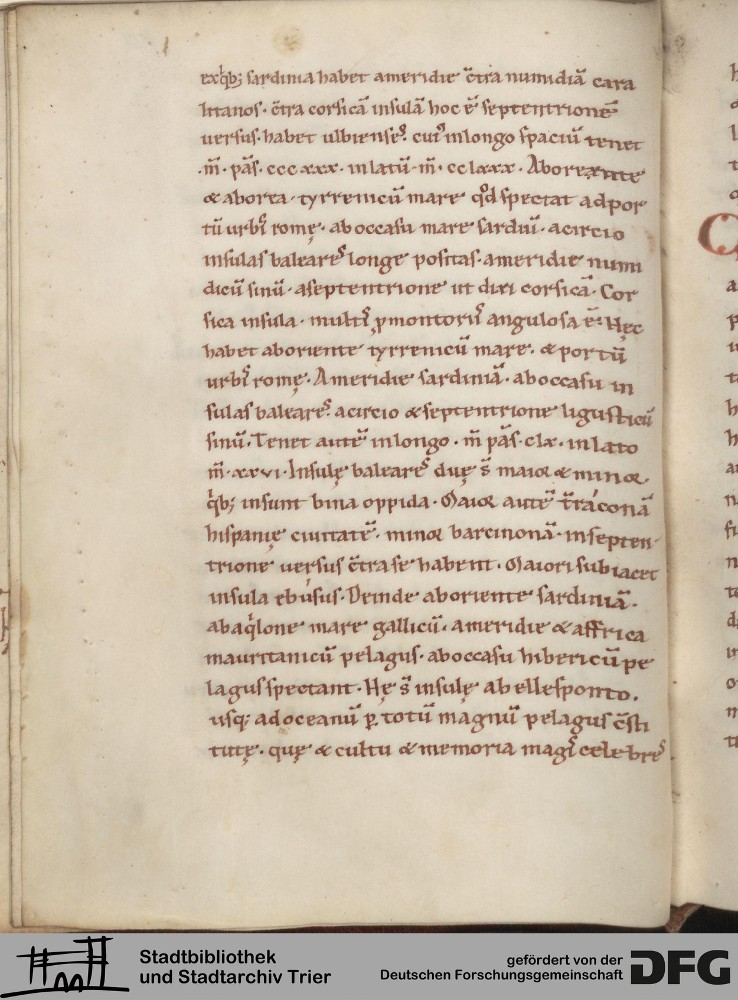 exq̇b; sardinia habet ameridie c̄tra numidiā cara
litanos · c̄tra corsicā insulā hoc ē septentrionē
uersus · habet ulbienseꝰ · cuiꝰ inlongo spaciū tenet
·m̄ · pas̄ · ccc xxx · inlatū · m̄ · cc lxxx · Aboreonte
& aborea · tyrrenicū mare qd̄ spectat adpor
tū urbiꝰ romę · aboccasu mare sardoū · acircio
insulas balearesꝰ longe positas · ameridie numi
dicū sinū · aseptentrione ut dixi corsicā · Cor
sica insula · multiꝰ ꝓmontoriiꝰ angulosa ē · Hęc
habet aboriente tyrrenicū mare · & portū
urbiꝰ romę · Ameridie sardiniā · aboccasu in
sulas balearesꝰ acircio & septentrione ligusticū
sinū · Tenet autē inlongo · m̄ pas̄ · clx · inlato
m̄ · xxvi · Insulę balearesꝰ duę s̄ maior & minor ·
q̇b; insunt bina oppida · Maior autē tr̄áconā
hispanię ciuitatē · minor barcinonā · insepten-
trione uersus c̄tra se habent · Maiori subiacet
insula ebúsus · Deinde aboriente sardiniā ·
abaq̇lone mare gallicū · ameridie & affrica
mauritanicū pelagus · aboccasu hibericū pe
lagus spectant · Hę s̄ insulę abellesponto ·
usq; adoceanū ꝑ totū magnū pelagus c̄sti
tutę · quę & cultu & memoria magiꝰ celebresꝰ
Stadtbibliothek
und Stadtarchiv Trier
gefördert von der
Deutschen Forschungsgemeinschaft
DFG